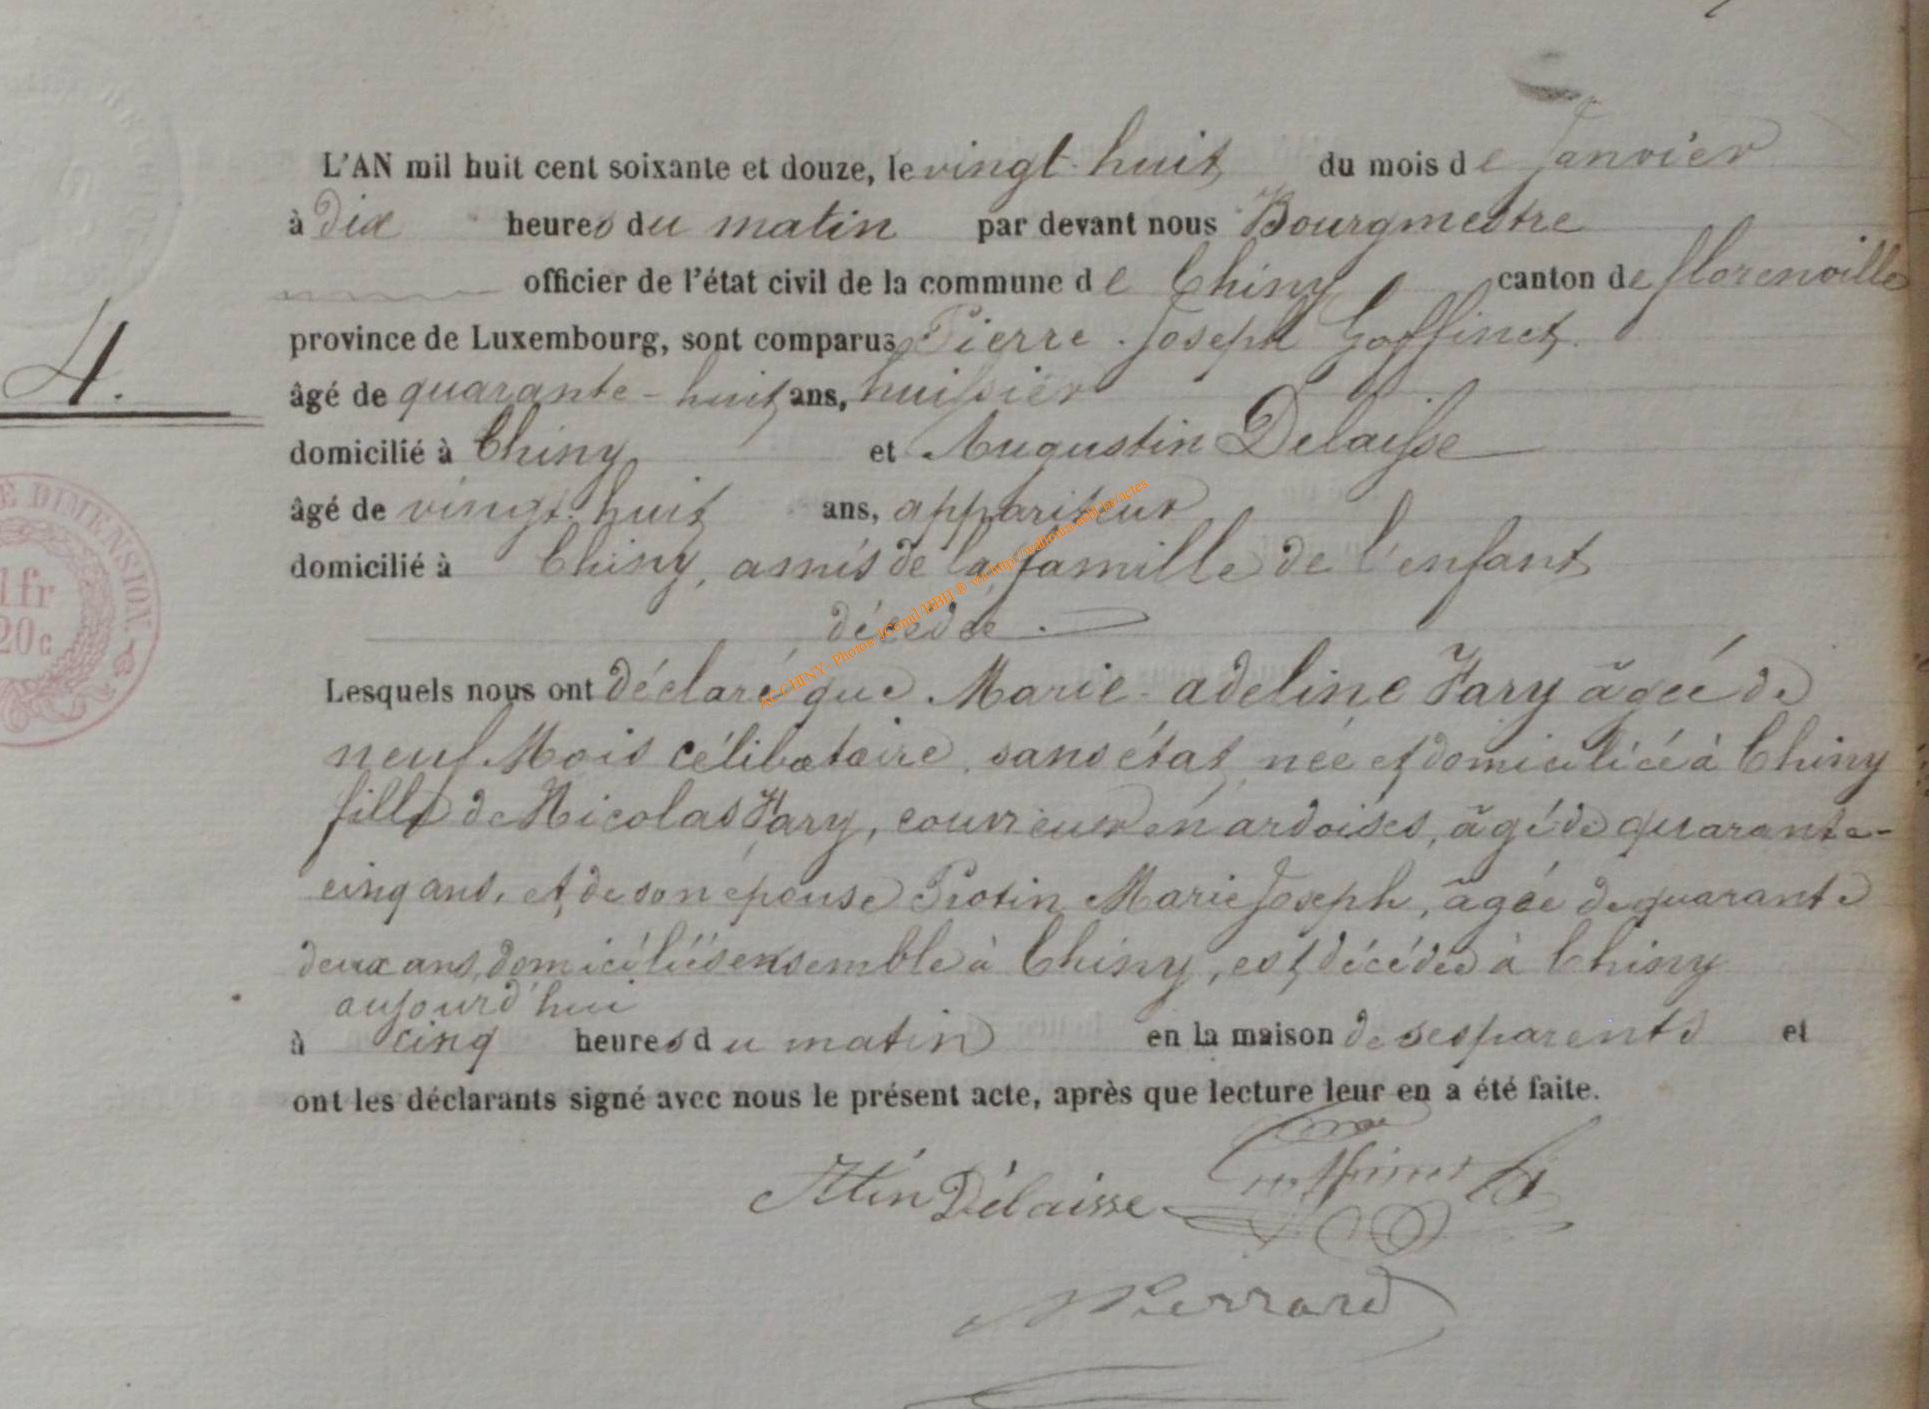 L'AN mil huit cent soixante et douze, le vingt-huit du mois de Janvier
à dix heures du matin par devant nous Bourgmestre
officier de l'état civil de la commune de Chiny canton de florenville
province de Luxembourg, sont comparus Pierre-Joseph Goffinet
4.
âgé de quarante-huit ans, huissier
domicilié à Chiny et Augustin Delaisse
âgé de vingt-huit ans, appariteur
domicilié à Chiny, amis de la famille de l'enfant
décédé.
E DIMENSION.
1 fr
20c
AC CHINY - Photos
Lesquels nous ont déclaré que Marie-adeline Hary âgée de
neuf Mois célibataire sans état née et domiciliée à Chiny
fille de Nicolas Hary, couvreur en ardoises, âgé de quarante-
cinq ans, et de son épouse Marie Joseph, âgée de quarante
deux ans, domiciliés ensemble à Chiny, est décédée à Chiny
aujourd'hui
à cinq heures du matin en la maison de ses parents et
ont les déclarants signé avec nous le présent acte, après que lecture leur en a été faite.
Atin Délaisse Goffinet
Pierrard